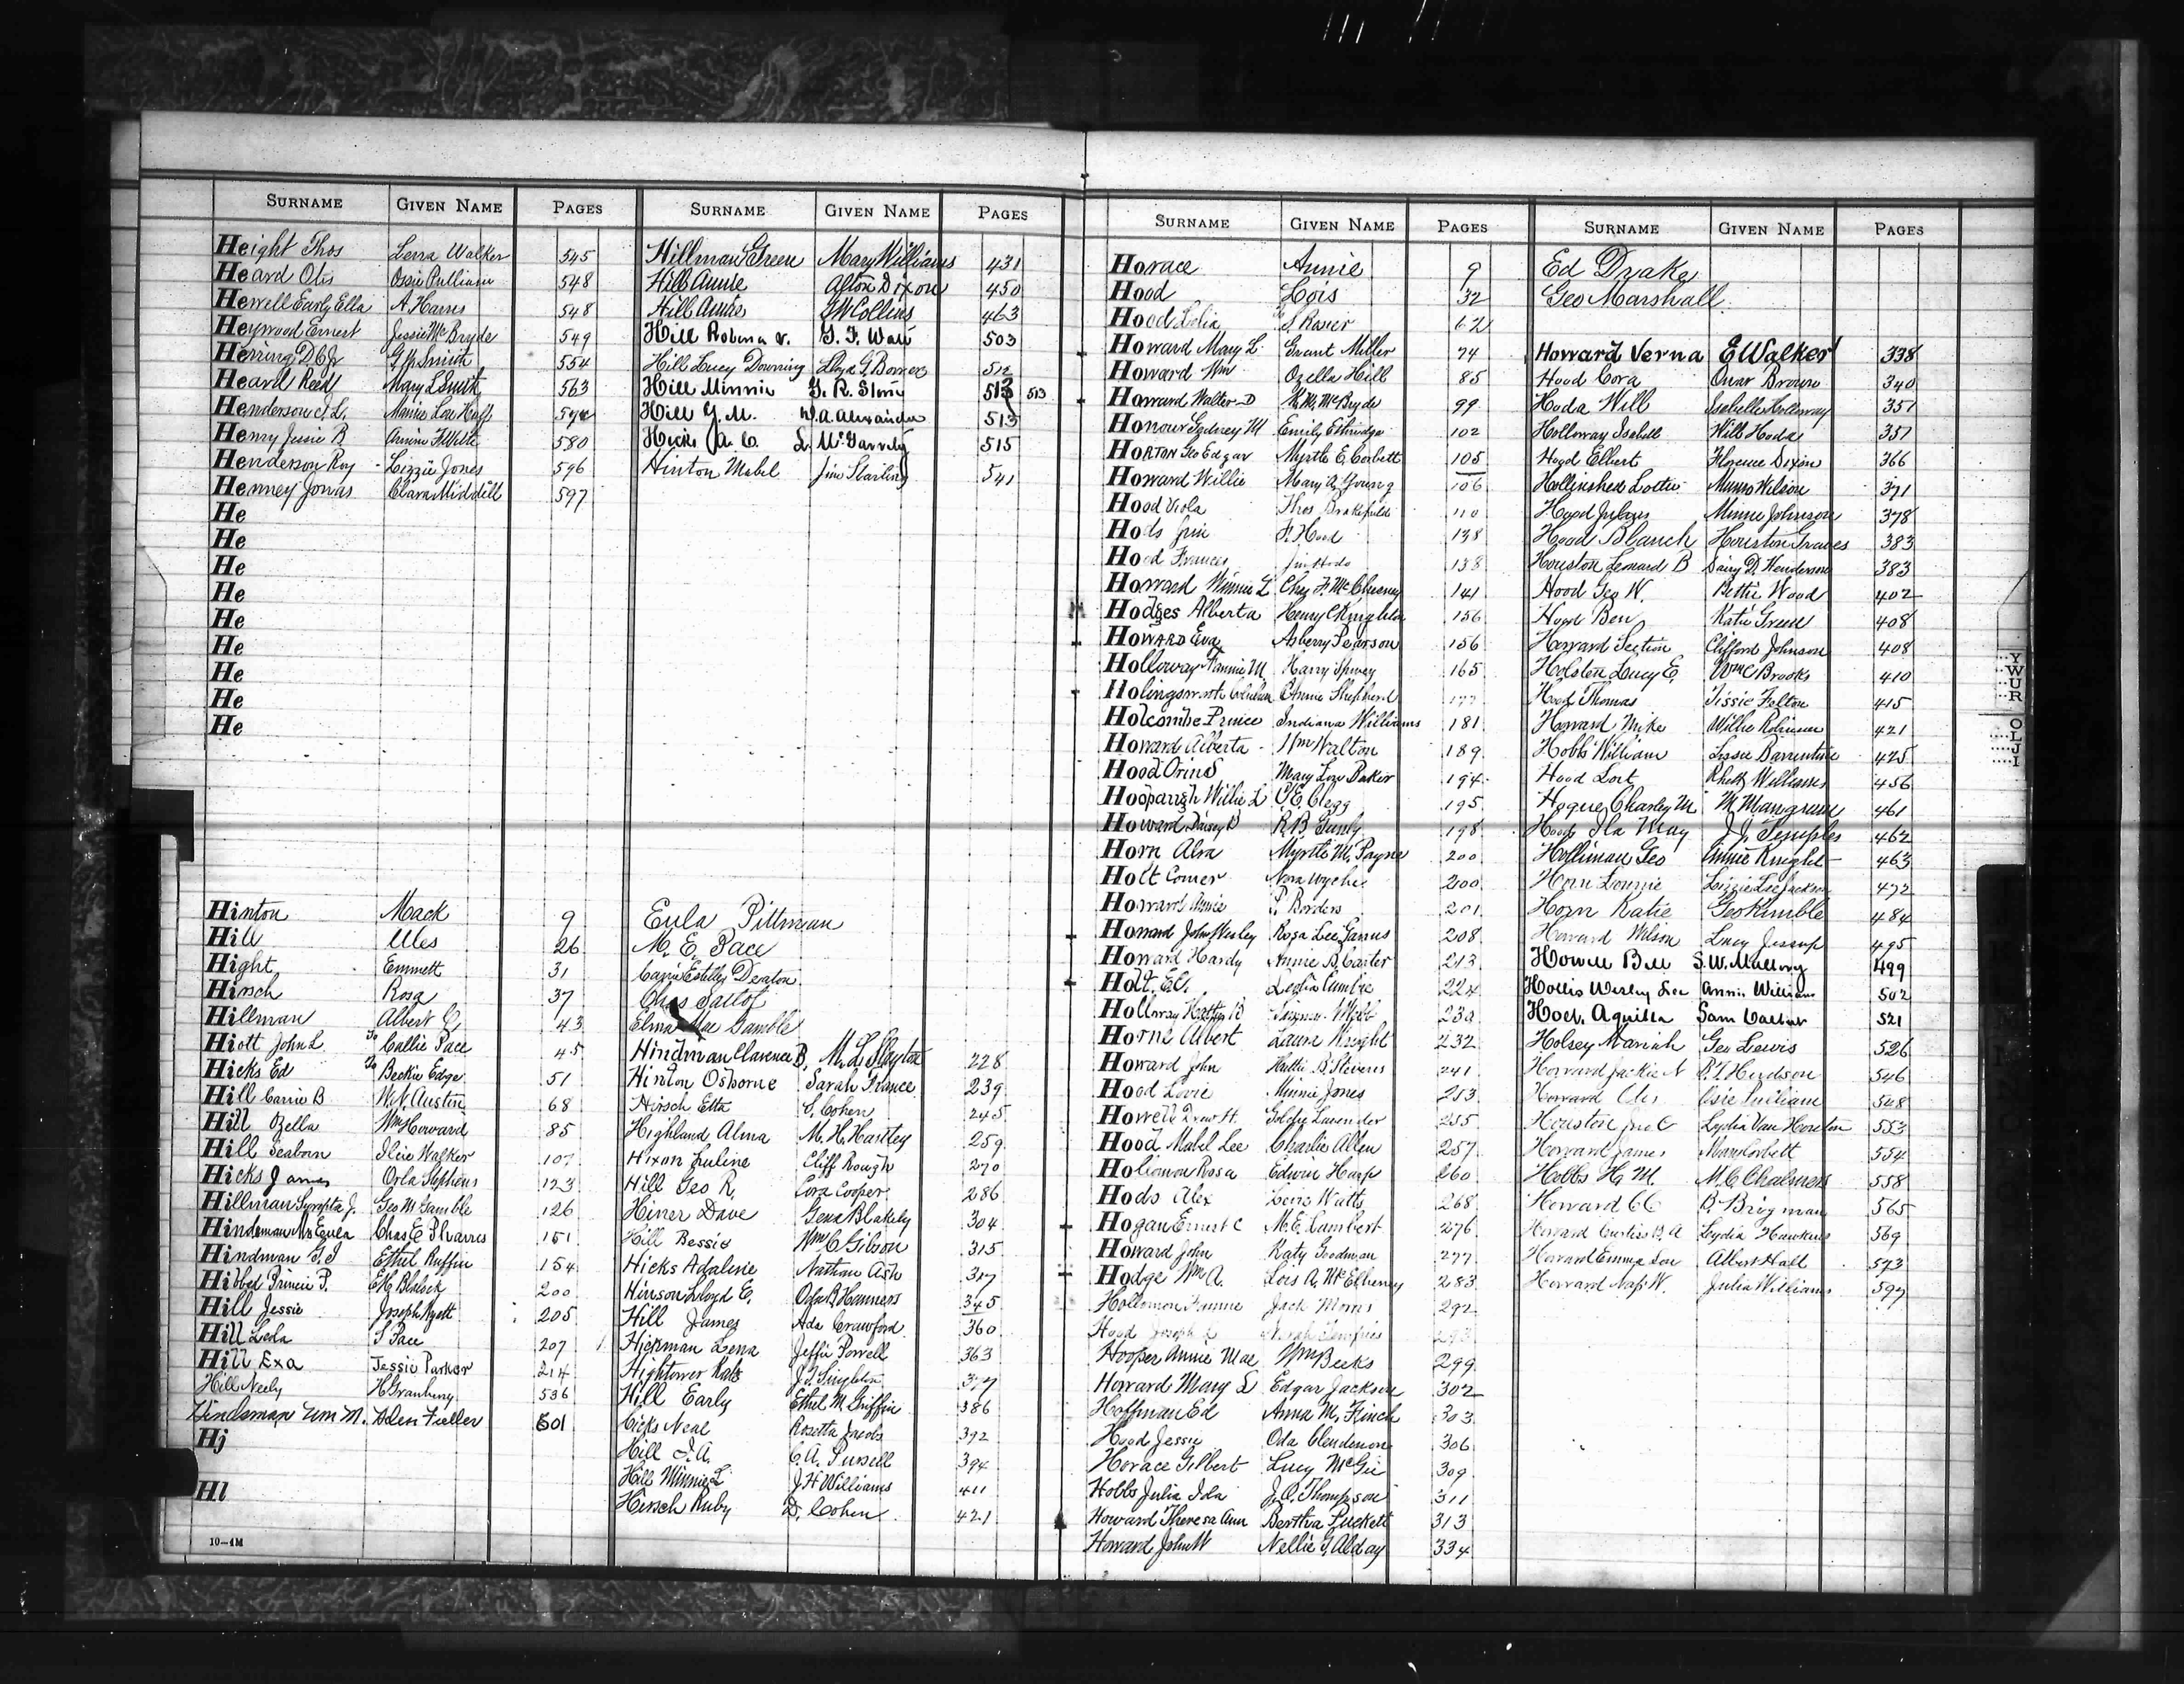 SURNAME GIVEN NAME PAGES
Height Thos Lena Walker 545
Heard Otis Ossie Pulliam 548
Hewell Early Ella A. Harris 548
Heywood Ernest Jessie McBryde 549
Herring G. P. Smith 554
Heard Reed Mary L Smith 563
Henderson J. L. Mamie Lou Huff
Henry Jessie B 580
Henderson Roy - Lizzie Jones 596
Henney Jonas Clara Middill 597
He
He
He
He
He
He
He
He
He
Hinton Mack 9 Eula Pittman
Hill Ules 26 M. E. Pace
Hight Emmett 31 Carrie Estelle Deaton
Hirsch Rosa 37 Chas
Hillman Albert C. 43 Elma Mae Gamble
Hiott John L To Callie Pace 45
Hicks Ed To Beckie Edge 51
Hill Carrie B W. N. Austin 68
Hill Zella Wm Howard 85
Hill Seaborn Ilcie Walker 107
Hicks James Orla Stephens 123
Hillman J. Geo M Gamble 126
Hindsman Mrs Eula Chas E Pharris 151
Hindman G. I Ethel Ruffin 154
Hibbed Princie P. E. H. Blalock 200
Hill Jessie Joseph Wyatt 205
Hill Leola S Pace 207
Hill Exa Jessie Parker 214
Hill Neely H Granbury 536
Hindsman Wm M. Fuller 601
Hj
Hl
10-4M
SURNAME GIVEN NAME PAGES
Hillman Green Mary Williams 431
Hill Annie Alton Dixon 450
Hill Annie G W Collins 463
Hill Robena V. G. F. Wall 503
Hill Lucy Downing Lloyd G. Bowers 512
Hill Minnie G. R. Stone 513 513
Hill G. M. W. A. Alexander 513
Hicks A. C. L. McGarrity 515
Hinton Mabel Jim Starling 541
Hindman Clarence B. M. L. Slayton 228
Hinton Osborne Sarah France 239
Hirsch Etta S. Cohen 245
Highland Alma M. H. Hartley 259
Hixon Euline Cliff Rough 270
Hill Geo R. Cora Cooper 286
Hiner Dave Gena Blakely 304
Hill Bessie Wm C Gibson 315
Hicks Adaline Nathan Ash 317
Hinson Lloyd E. Oda B Hanners 345
Hill James Ada Crawford 360
Hickman Lena Jeffie Powell 363
Hightower Kate J. T. Singleton 377
Hill Early Ethel M. Griffin 386
Hicks Neal Rosetta Jacobs 392
Hill J. A. C. A. Pursell 394
Hill Minnie L J. H Williams 411
Hirsch Ruby D. Cohen 421
SURNAME GIVEN NAME PAGES
Horace Annie 9 Ed Drake
Hood Lois 32 Geo Marshall
Hood Lolia To S. Rosier 62
Howard Mary L. Grant Miller 74
Howard Wm Ozella Hill 85
Howard Walter D K. M. McBryde 99
Honour Sydney M Emily Ethridge 102
HORTON Geo Edgar Myrtle E. Corbett 105
Howard Willie Mary A. Young 106
Hood Viola Thos Brakefield 110
Hods Jim F. Hood 138
Hood Frances Jim Hods 138
Howard Winnie L Chez F. McChesney 141
Hodges Alberta Henry C Kingleton 156
HOWARD Eva Asberry Pearson 156
Holloway Fannie M Harry Spivey 165
Holingsworth Annie Shepherd 177
Holcombe Prince Indiana Williams 181
Howard Alberta - Wm Walton 189
Hood Orin S Mary Lou Baker 194
Hooparugh Willie L C. E. Clegg 195
Howard Daisey B R B Gunby 198
Horn Alva Myrtle M. Payne 200
Holt Comer Nora Wyche 200
Howard Annie P. Borders 201
Howard John Wesley Rosa Lee Garrus 208
Howard Hardy Annie B. Carter 213
Holt. E. C. Leola Cumbie 224
Holloway Hattie B Webb
Horne Albert Laura Knight 232
Howard John Hattie B. Stevens 241
Hood Lovie Minnie Jones 253
Howell Drew H. Goldie Lavender 255
Hood Mabel Lee Charlie Allen 257
Holiomon Rosa Edwin Harp 260
Hods Alex Watts 268
Hogan Ernest C M. E. Lambert 276
Howard John Katy Goodman 277
Hodge Wm A. Lois A. McElheney 283
Hollomon Fannie Jack Morris 292
Hood Joseph 293
Hooper Annie Mae Wm Beeks 299
Howard Mary L Edgar Jackson 302
Hoffman Ed Anna M. Finch 303
Hood Jessie Oda Clendenon 306
Horace Gilbert Lucy McGee 309
Hobbs Julia Ida J. O. Thompson 311
Howard Theresa Ann Bertha Puckett 313
Howard John W Nellie G. Alday 334
SURNAME GIVEN NAME PAGES
Howard Verna E Walker 338
Hood Cora Omar Brown 340
Hoda Will Isabelle Holloway 351
Holloway Isabell Will Hoda 351
Hood Elbert Florence Dixon 366
Hollinshed Lottie Munro Wilson 371
Hood Minnie Johnson 378
Hood Blanch Houston Graves 383
Houston Leonard B Daisy D. Henderson 383
Hood Geo W. Bettie Wood 402
Hood Ben Katie Green 408
Howard Section Clifford Johnson 408
Holston Lucy E. Wm C Brooks 410
Hood Thomas Tissie Felton 415
Howard Mike Willie Robinson 421
Hobbs William Lessie Barrentine 425
Hood Lort Rhett Williams 456
Hogue Charley M M Mangrum 461
Hood Ila May J. J. Temples 462
Holliman Geo Annie Knight 463
Horn Lonnie Lizzie Lee Jackson 472
Horn Katie Geo Kimble 484
Howard Wilson Lucy Jessup 495
Howell Bell S. W. Mallory 499
Hollis Wesley Lee Annie Williams 502
Hoel. Aquilla Sam 521
Holsey Mariah Geo Lewis 526
Howard Jackie N R. T. Hudson 546
Howard Otis Osie Pulliam 548
Houston Jno C Lydia Van Houten 553
Howard James Mary Corbett 554
Hobbs H. M. M. C. Chalmers 558
Howard C C B. Brigman 565
Howard Curtiss B. A Lydia Hawkins 569
Howard Emma Lou Albert Hall 573
Howard Nap W. Julia Williams 597
Y
W
U
R
O
L
J
I